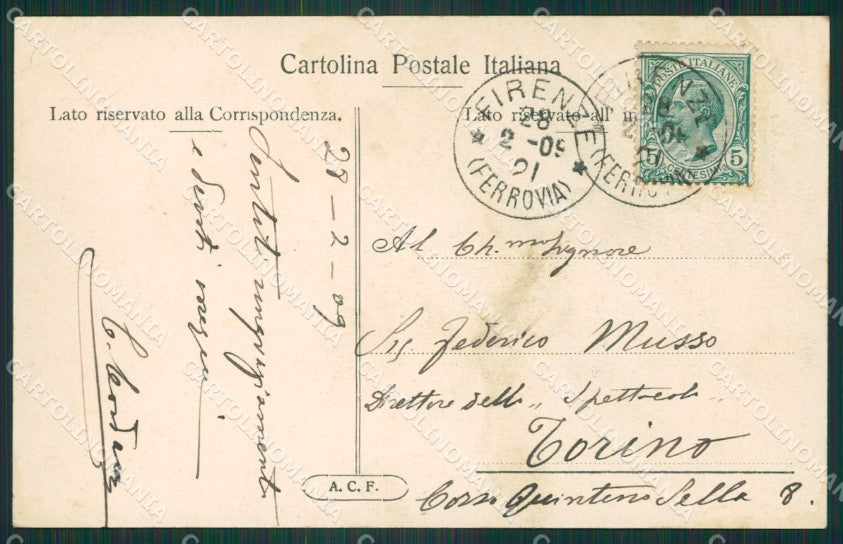 Cartolina Postale Italiana
Lato riservato alla Corrispondenza.
Lato riservato all'
FIRENZE
28
2 -09
21
(FERROVIA)
POSTE ITALIANE
5 5
CENTESIMI
28-2-09
e
Al Ch.mo Signore
Sig Federico Musso
Direttore dello „ Spettacolo „
Torino
Corso Quintino Sella 8.
A. C. F.
CARTOLINOMANIA